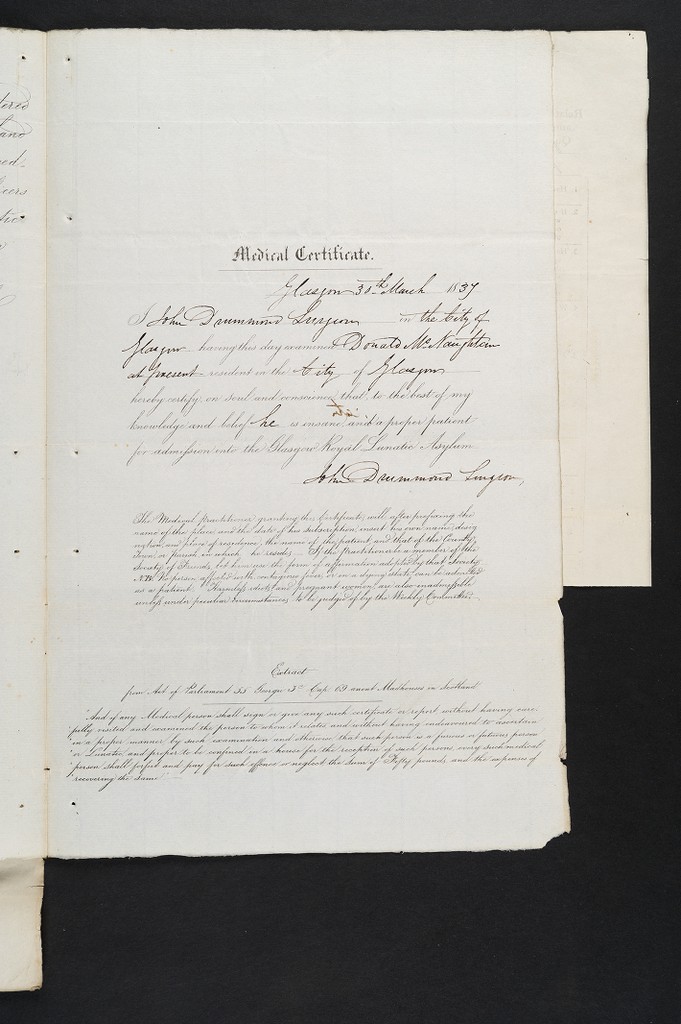 tered
and
ed.
cers
Medical Certificate.
Glasgow 30th March 1837
I John Drummond Surgeon in the City of
Glasgow having this day examined Donald McNaughton
at present resident in the City of Glasgow
hereby certify, on soul and conscience, that, to the best of my
knowledge and belief he is insane, and a proper patient
for admission into the Glasgow Royal Lunatic Asylum
John Drummond Surgeon,
The Medical Practitioner granting the Certificate, will after prefixing the
name of the place, and the date of his subscription, insert his own name, desig
nation, and place of residence, the name of the patient and that of the County,
Town, or Parish, in which he resides. If the practitioner be a member of the
Society of Friends, let him use the form of affirmation adopted by that Society.
NB. No person affected with contagious fever, or in a dying state, can be admitted
as a patient. Harmless idiots, and pregnant women, are also inadmissible
unless under peculiar circumstances, to be judged of by the Weekly Committee.
Extract
from Act of Parliament 55 George 3d Cap. 69 anent Madhouses in Scotland
"And if any Medical person shall sign or give any such certificate or report without having care-
"fully visited and examined the person to whom it relates, and without having endeavoured to ascertain
"in a proper manner by such examination and otherwise, that such person is a furious or fatuous person
"or Lunatic, and proper to be confined in a house for the reception of such persons, every such medical
"person shall forfeit and pay for such offence or neglect the sum of Fifty pounds, and the expenses of
"recovering the same"